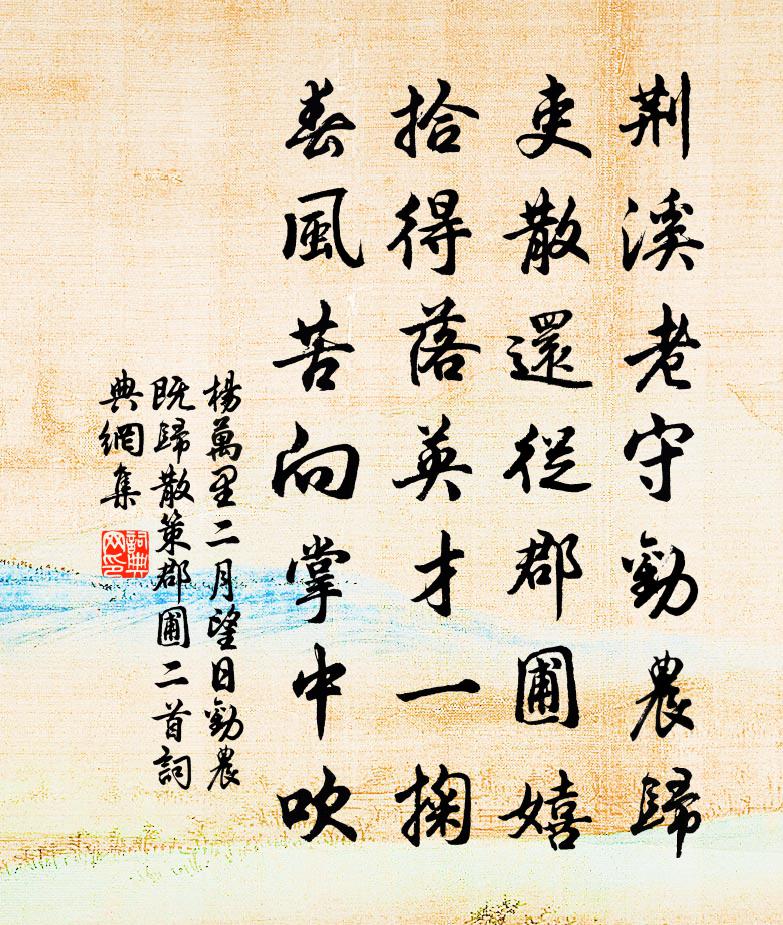 荆溪老守勸農歸
吏散還從郡圃嬉
拾得落英才一掬
春風苦向掌中吹
楊萬里二月望日勸農
既歸散策郡圃二首詞
典網集
詞典
网印